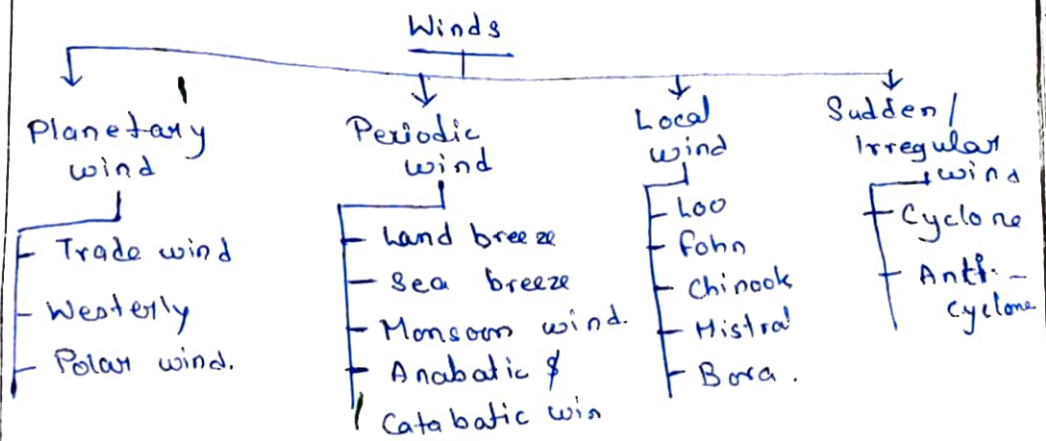 Winds
Planetary
wind
Trade wind
Westerly
Polar wind.
Periodic
wind
Land breeze
Sea breeze
Monsoon wind.
Anabatic &
Catabatic win
Local
wind
Loo
Fohn
Chinook
Mistral
Bora.
Sudden/
Irregular
wind
Cyclone
Anti-
cyclone